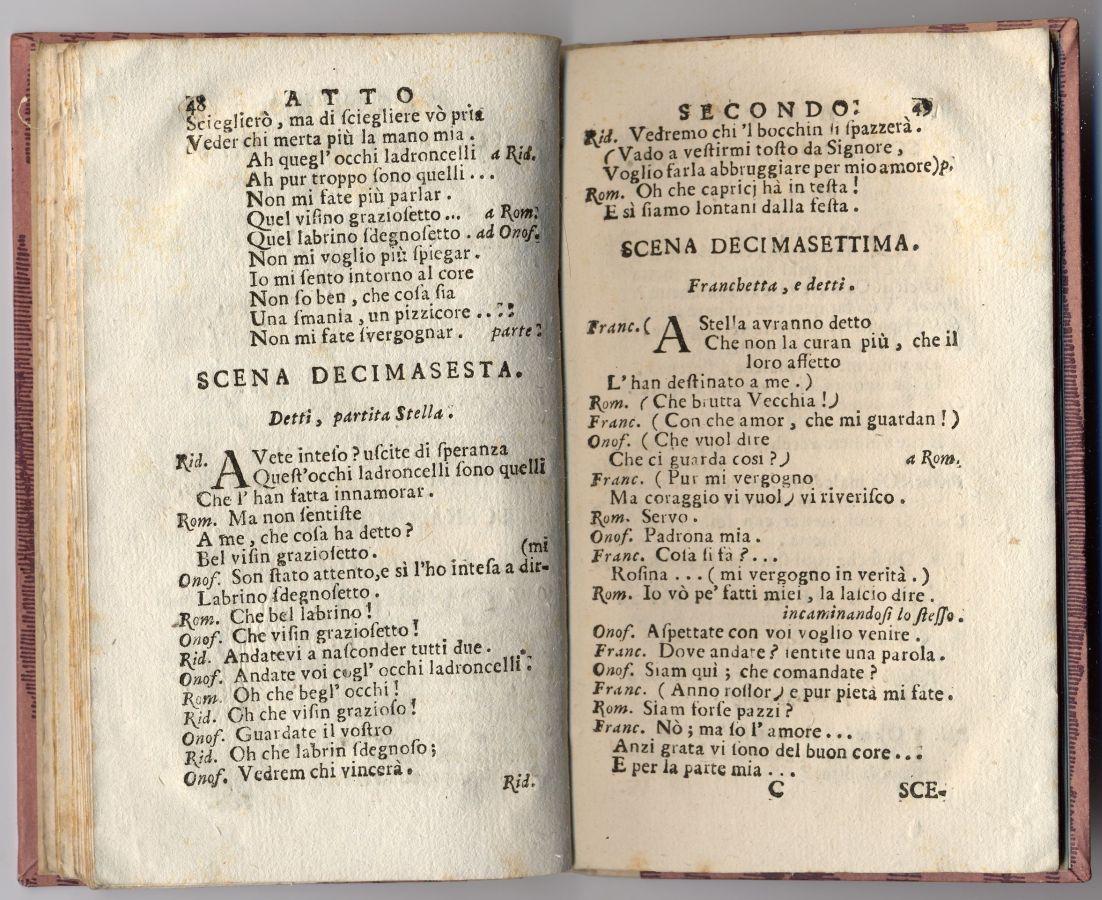 48 ATTO
Scieglierò, ma di ſciegliere vò pria
Veder chi merta più la mano mia.
Ah quegl' occhi ladroncelli a Rid.
Ah pur troppo ſono quelli...
Non mi fate più parlar.
Quel viſino grazioſetto... a Rom.
Quel labrino ſdegnoſetto. ad Onof.
Non mi voglio più ſpiegar.
Io mi ſento intorno al core
Non ſo ben, che coſa ſia
Una ſmania, un pizzicore....
Non mi fate ſvergognar. parte.
SCENA DECIMASESTA.
Detti, partita Stella.
Rid. AVete inteſo? uſcite di ſperanza
Queſt'occhi ladroncelli ſono quelli
Che l' han fatta innamorar.
Rom. Ma non ſentiſte
A me, che coſa ha detto?
Bel viſin grazioſetto. (mi
Onof. Son ſtato attento,e sì l'ho inteſa a dir-
Labrino ſdegnoſetto.
Rom. Che bel labrino!
Onof. Che viſin grazioſetto!
Rid. Andatevi a naſconder tutti due.
Onof. Andate voi cogl' occhi ladroncelli.
Rom. Oh che begl' occhi!
Rid. Oh che viſin grazioſo!
Onof. Guardate il voſtro
Rid. Oh che labrin ſdegnoſo;
Onof. Vedrem chi vincerà.
Rid.
SECONDO. 49
Rid. Vedremo chi 'l bocchin ſi ſpazzerà.
(Vado a veſtirmi toſto da Signore,
Voglio farla abbruggiare per mio amore)p.
Rom. Oh che capricj hà in teſta!
E sì ſiamo lontani dalla feſta.
SCENA DECIMASETTIMA.
Franchetta, e detti.
Franc. (A Stella avranno detto
Che non la curan più, che il
loro affetto
L' han deſtinato a me.)
Rom. (Che brutta Vecchia!)
Franc. (Con che amor, che mi guardan!)
Onof. (Che vuol dire
Che ci guarda così?) a Rom.
Franc. (Pur mi vergogno
Ma coraggio vi vuol) vi riveriſco.
Rom. Servo.
Onof. Padrona mia.
Franc. Coſa ſi fà?...
Roſina...(mi vergogno in verità.)
Rom. Io vò pe' fatti miei, la laſcio dire.
incaminandoſi lo ſteſſo.
Onof. Aſpettate con voi voglio venire.
Franc. Dove andate? ſentite una parola.
Onof. Siam quì; che comandate?
Franc. (Anno roſſor) e pur pietà mi fate.
Rom. Siam forſe pazzi?
Franc. Nò; ma ſo l' amore...
Anzi grata vi ſono del buon core...
E per la parte mia...
C SCE-